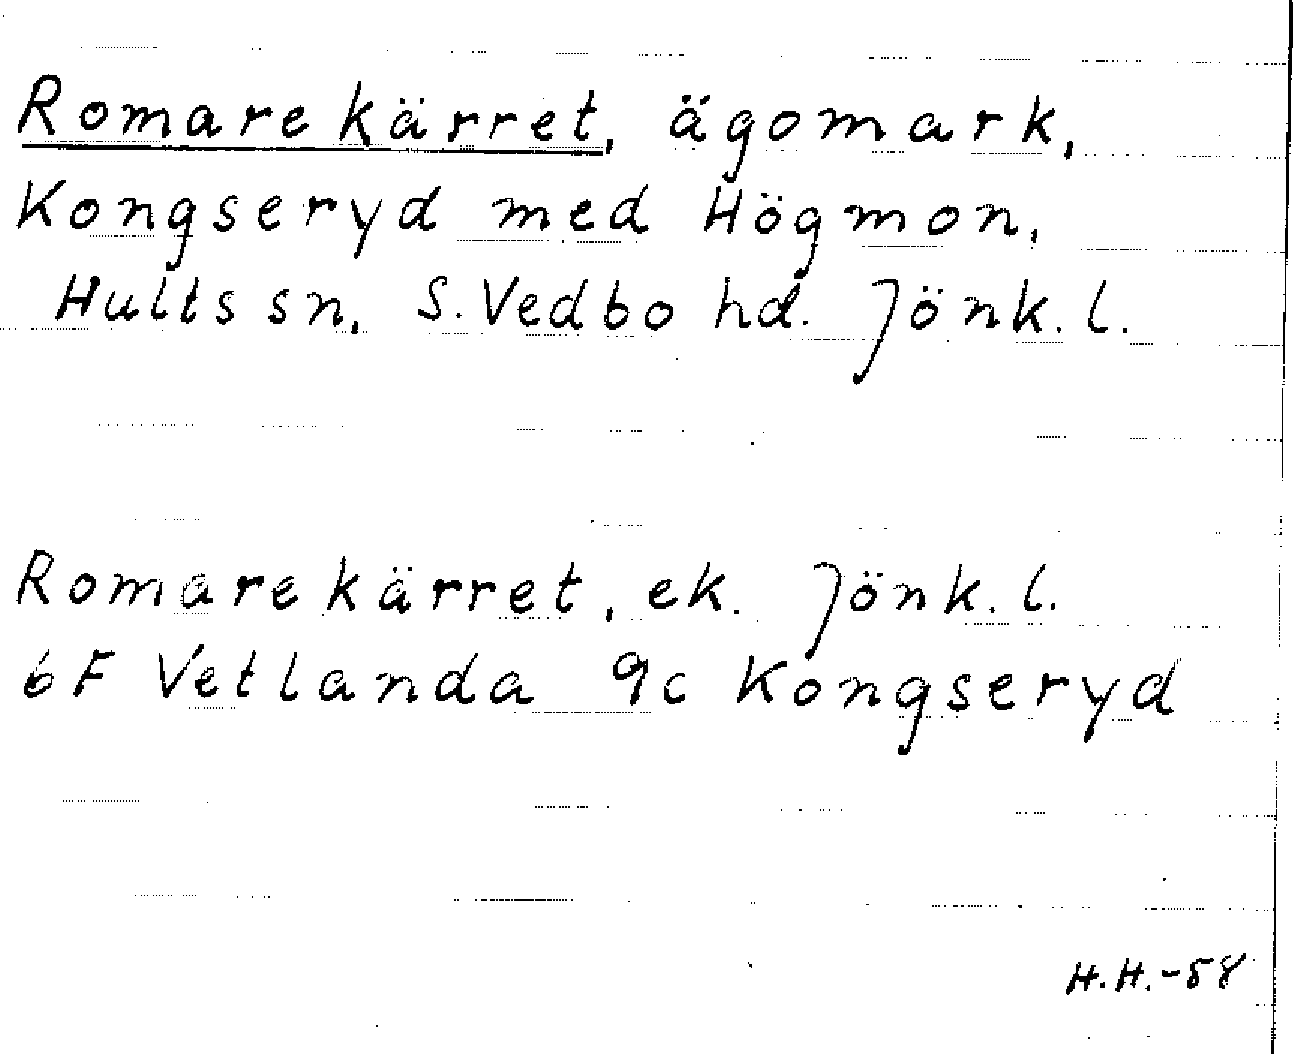 Romarekärret, ägomark,
Kongseryd med Högmon,
Hults sn, S. Vedbo hd. Jönk. l.
Romarekärret, ek. Jönk. l.
6F Vetlanda 9c Kongseryd
H.H.-58